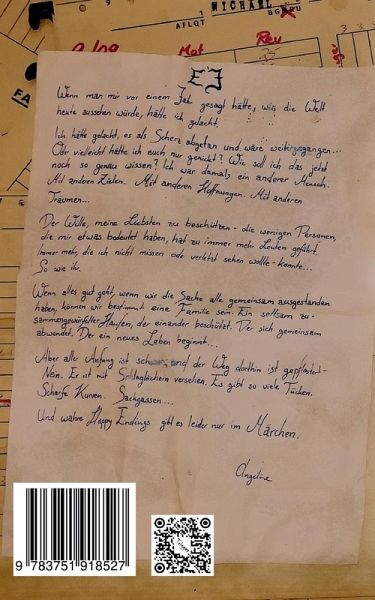 MICHAEL
AFLQT
Mot
Rev
FA
Wenn man mir vor einem Jahr gesagt hätte, wie die Welt
heute aussehen würde, hätte ich gelacht.
Ich hätte gelacht, es als Scherz abgetan und wäre weitergegangen...
Oder vielleicht hätte ich auch nur genickt? Wie soll ich das jetzt
noch so genau wissen? Ich war damals ein anderer Mensch.
Mit anderen Zielen. Mit anderen Hoffnungen. Mit anderen
Träumen...
Der Wille, meine Liebsten zu beschützen - die wenigen Personen,
die mir etwas bedeutet haben, hat zu immer mehr Leuten geführt.
Immer mehr, die ich nicht missen oder verletzt sehen wollte - konnte...
So wie ihr.
Wenn alles gut geht, wenn wir die Sache alle gemeinsam ausgestanden
haben, können wir bestimmt eine Familie sein. Ein seltsam zu-
sammengewürfelter Haufen, der einander beschützt. Der sich gemeinsam
abwendet. Der ein neues Leben beginnt...
Aber aller Anfang ist schwer und der Weg dorthin ist gepflastert -
Nein. Er ist mit Schlaglöchern versehen. Es gibt so viele Tücken.
Scharfe Kurven. Sackgassen...
Und wahre Happy Endings gibt es leider nur im Märchen.
Angelina
9 783751 918527